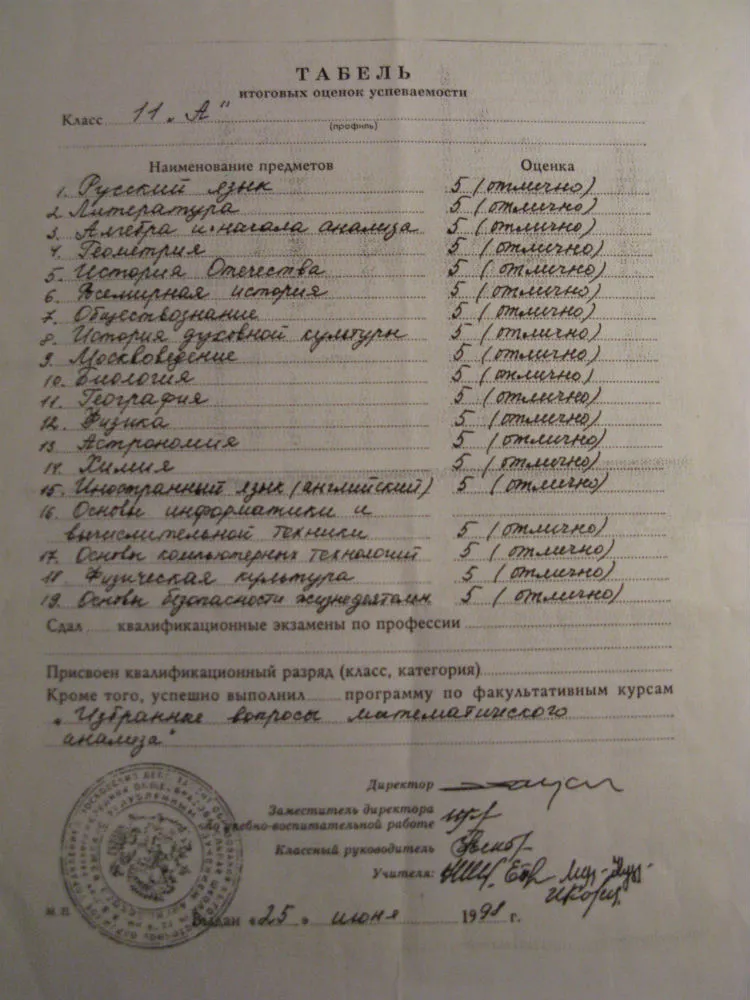 ТАБЕЛЬ
итоговых оценок успеваемости
Класс 11 „А"
(профиль)
Наименование предметов Оценка
1. Русский язык 5 (отлично)
2. Литература 5 (отлично)
3. Алгебра и начала анализа 5 (отлично)
4. Геометрия 5 (отлично)
5. История Отечества 5 (отлично)
6. Всемирная история 5 (отлично)
7. Обществознание 5 (отлично)
8. История духовной культуры 5 (отлично)
9. Москвоведение 5 (отлично)
10. Биология 5 (отлично)
11. География 5 (отлично)
12. Физика 5 (отлично)
13. Астрономия 5 (отлично)
14. Химия 5 (отлично)
15. Иностранный язык (английский) 5 (отлично)
16. Основы информатики и
вычислительной техники 5 (отлично)
17. Основы компьютерных технологий 5 (отлично)
18 Физическая культура 5 (отлично)
19. Основы безопасности жизнедеятельн 5 (отлично)
Сдал квалификационные экзамены по профессии
Присвоен квалификационный разряд (класс, категория)
Кроме того, успешно выполнил программу по факультативным курсам
„Избранные вопросы математического
анализа"
Директор
Заместитель директора
по учебно-воспитательной работе
Классный руководитель
Учителя:
М. П.
Выдан «25» июня 1998 г.